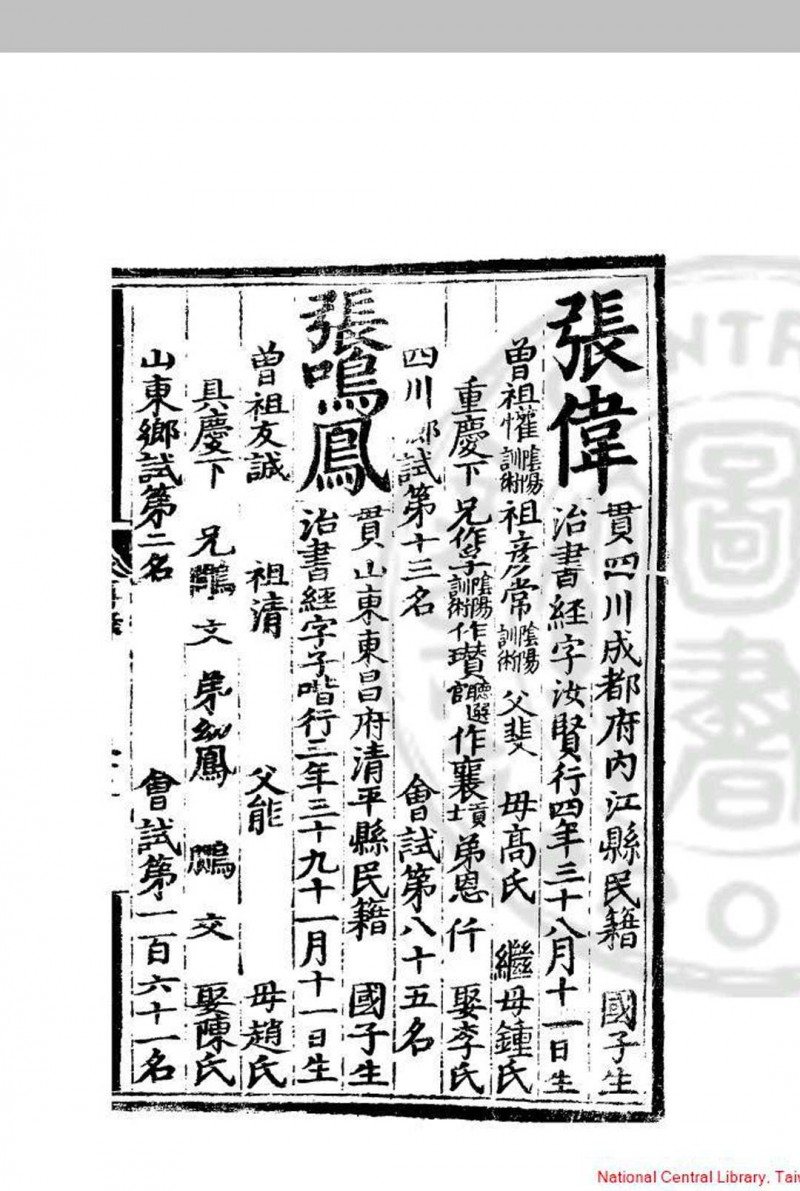 張偉
貫四川成都府内江縣民籍 國子生
治書經字汝賢行四年三十八月十一日生
曾祖懽陰陽訓術 祖彥常陰陽訓術 父斐 母高氏 繼母鍾氏
重慶下 兄作孚陰陽訓術 作瓚聽選官 作襄 弟恩 仟 娶李氏
四川鄉試第十三名 會試第八十五名
張鳴鳳
貫山東東昌府清平縣民籍 國子生
治書經字子喈行三年三十九十一月十一日生
曾祖友誠 祖清 父能 母趙氏
具慶下 兄鸞 文 弟幼鳳 鵬 交 娶陳氏
山東鄉試第二名 會試第一百六十一名
National Central Library, Taiw